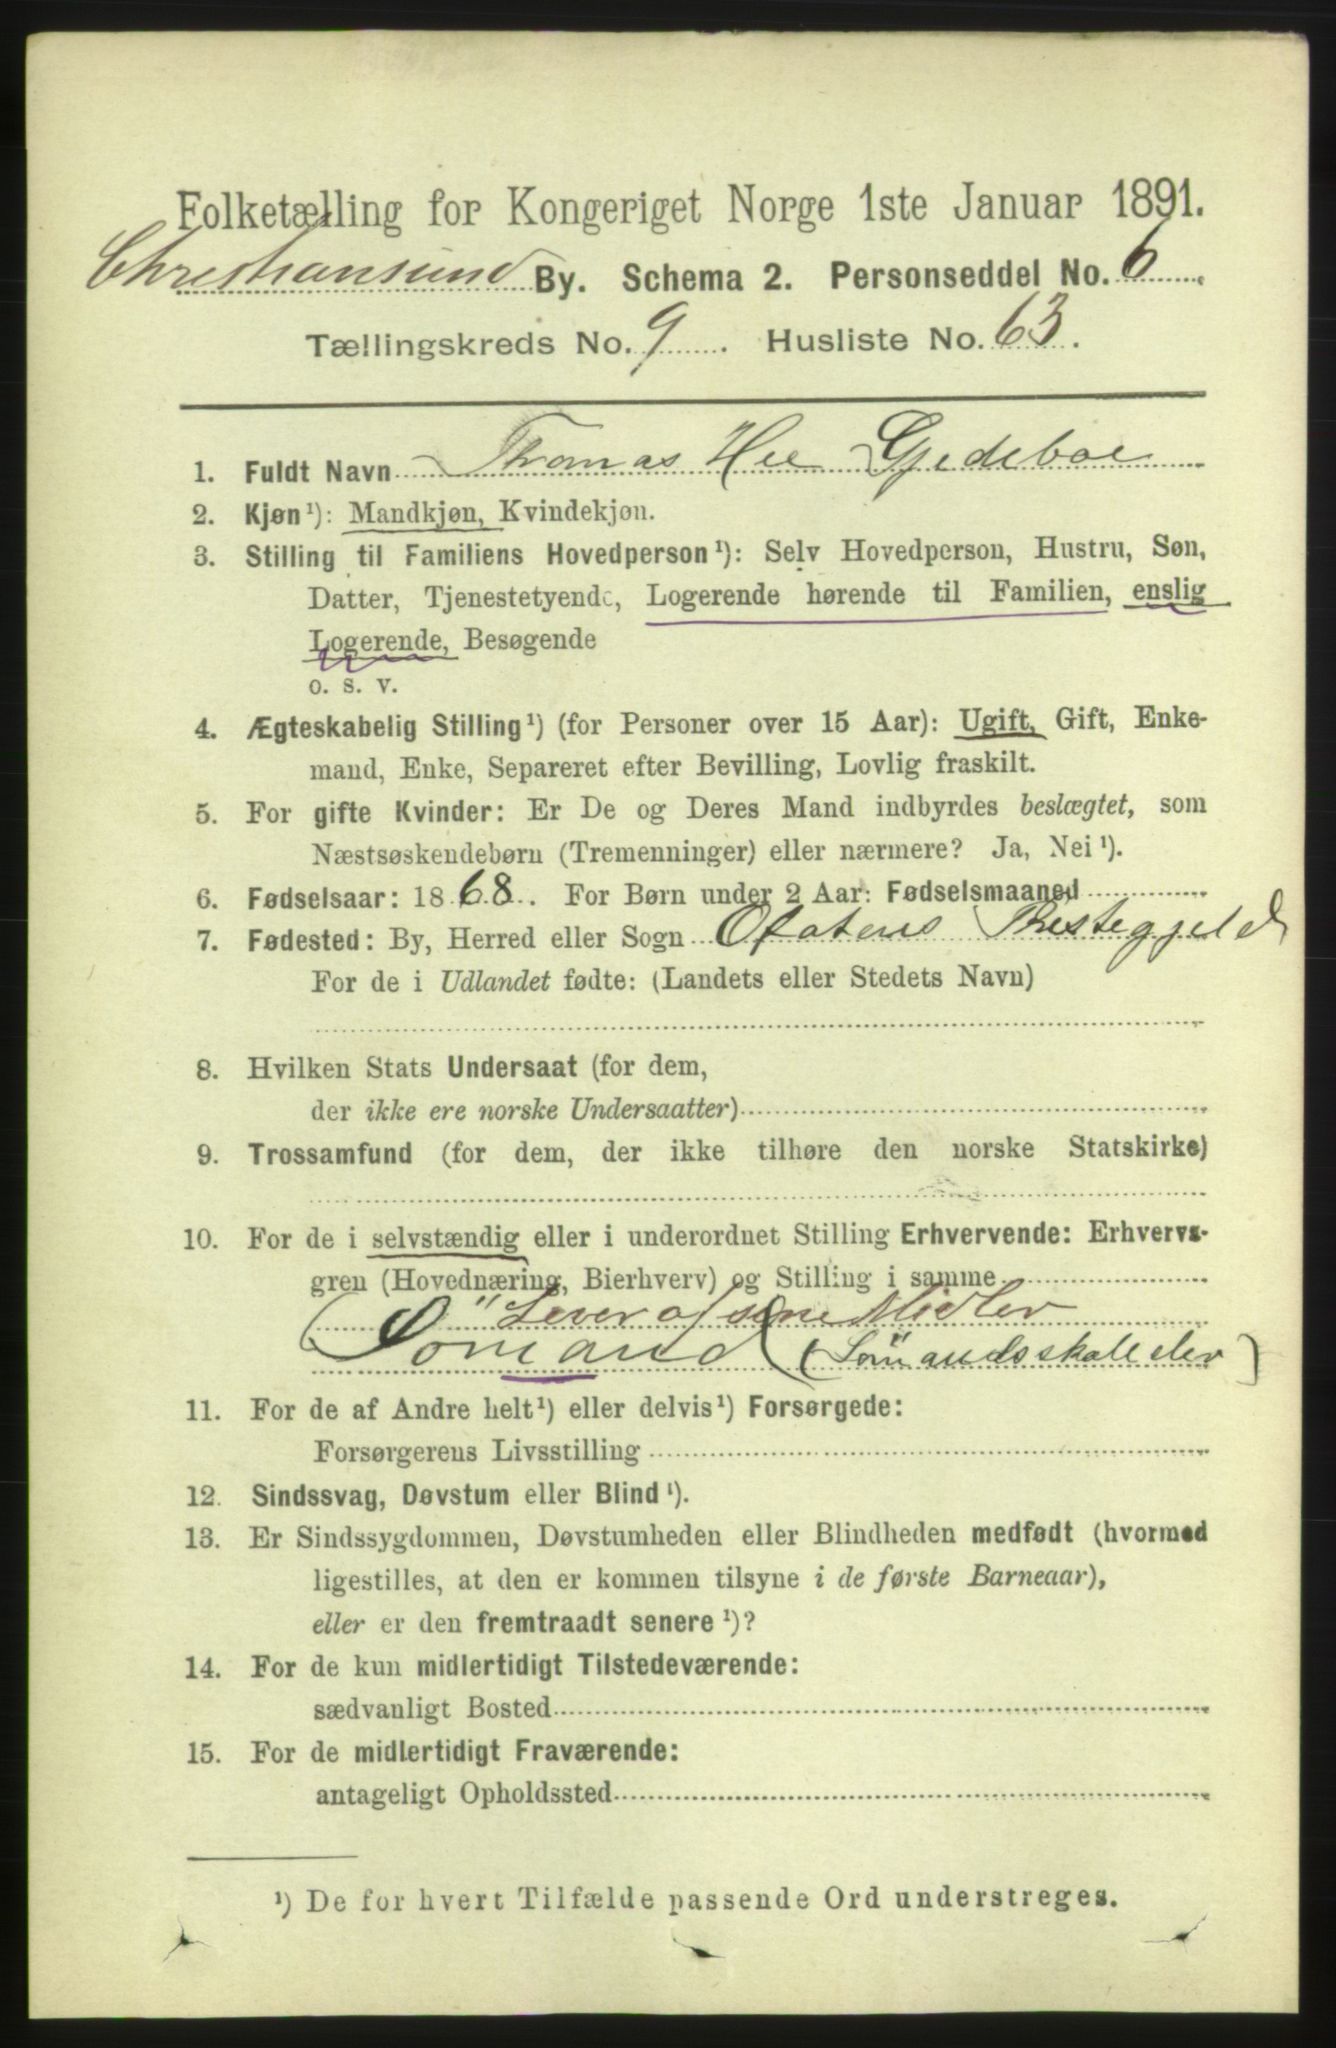 Folketælling for Kongeriget Norge 1ste Januar 1891.
Christiansund By. Schema 2. Personseddel No. 6
Tællingskreds No. 9. Husliste No. 63.
1. Fuldt Navn Thomas Hee Gjedeboe
2. Kjøn ¹): Mandkjøn, Kvindekjøn.
3. Stilling til Familiens Hovedperson ¹): Selv Hovedperson, Hustru, Søn,
Datter, Tjenestetyende, Logerende hørende til Familien, enslig
Logerende, Besøgende
o. s. v.
4. Ægteskabelig Stilling ¹) (for Personer over 15 Aar): Ugift, Gift, Enke-
mand, Enke, Separeret efter Bevilling, Lovlig fraskilt.
5. For gifte Kvinder: Er De og Deres Mand indbyrdes beslægtet, som
Næstsøskendebørn (Tremenninger) eller nærmere? Ja, Nei ¹).
6. Fødselsaar: 1868. For Børn under 2 Aar: Fødselsmaaned
7. Fødested: By, Herred eller Sogn Ofotens Prestegjeld
For de i Udlandet fødte: (Landets eller Stedets Navn)
8. Hvilken Stats Undersaat (for dem,
der ikke ere norske Undersaatter)
9. Trossamfund (for dem, der ikke tilhøre den norske Statskirke)
10. For de i selvstændig eller i underordnet Stilling Erhvervende: Erhvervs-
gren (Hovednæring, Bierhverv) og Stilling i samme
Lever af sine Midler
(Sömand) (Sömandsskoleelev)
11. For de af Andre helt ¹) eller delvis ¹) Forsørgede:
Forsørgerens Livsstilling
12. Sindssvag, Døvstum eller Blind ¹).
13. Er Sindssygdommen, Døvstumheden eller Blindheden medfødt (hvormed
ligestilles, at den er kommen tilsyne i de første Barneaar),
eller er den fremtraadt senere ¹)?
14. For de kun midlertidigt Tilstedeværende:
sædvanligt Bosted
15. For de midlertidigt Fraværende:
antageligt Opholdssted
¹) De for hvert Tilfælde passende Ord understreges.